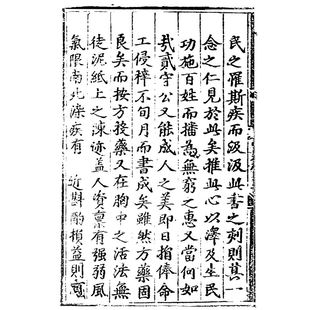 民之罹斯疾而汲汲此書之刻則其一
念之仁見於此矣推此心以澤及生民
功施百姓而播為無窮之惠又當何如
哉貳守公又能成人之美即日捐俸命
工侵梓不旬月而書成矣雖然方藥固
良矣而按方投藥又在胸中之活法無
徒泥紙上之陳迹盖人資禀有强弱風
氣限南北染疾有 近斟酌損益則可